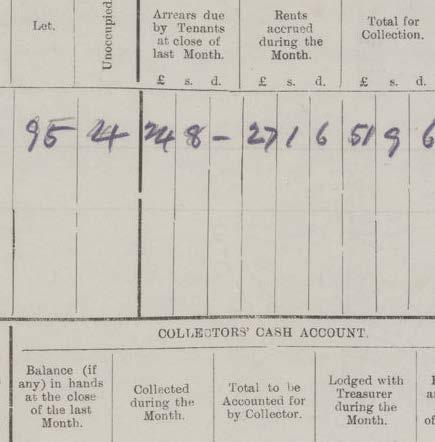 Let.
Unoccupied.
Arrears due
by Tenants
at close of
last Month.
Rents
accrued
during the
Month.
Total for
Collection.
£ s. d. £ s. d. £ s. d.
95 24 24 8 - 27 1 6 51 9 6
COLLECTORS' CASH ACCOUNT.
Balance (if
any) in hands
at the close
of the last
Month.
Collected
during the
Month.
Total to be
Accounted for
by Collector.
Lodged with
Treasurer
during the
Month.